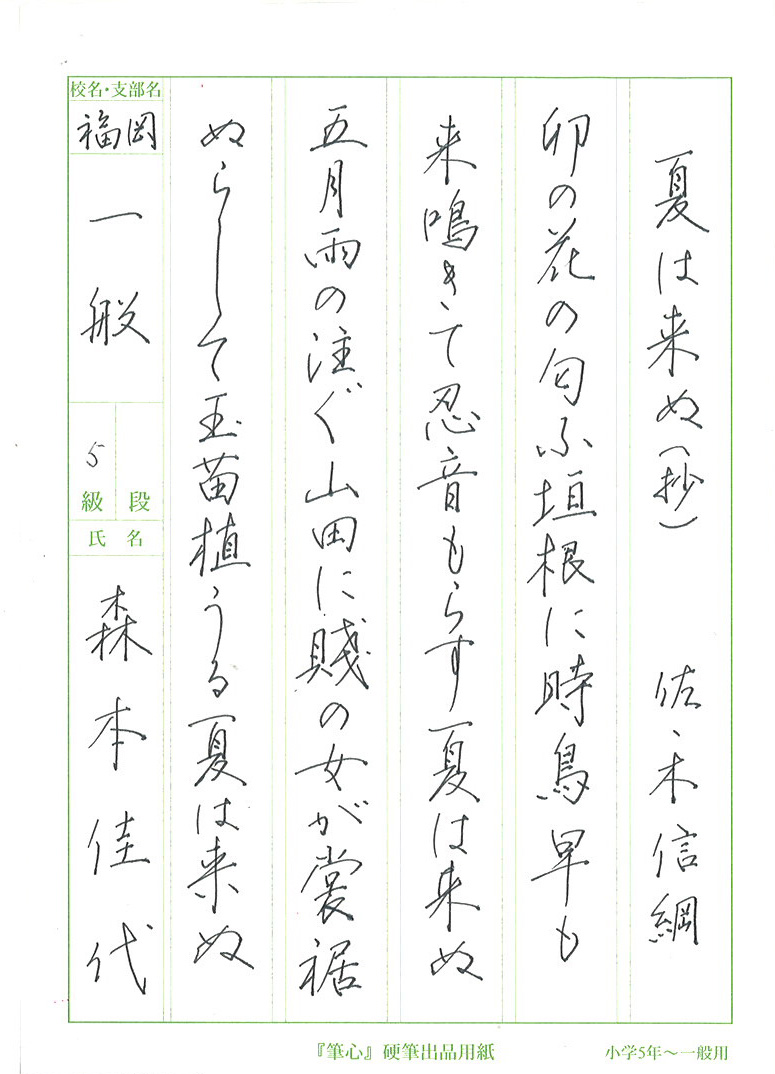 夏は来ぬ(抄)　佐々木信綱
卯の花の匂ふ垣根に時鳥早も
来鳴きて忍音もらす夏は来ぬ
五月雨の注ぐ山田に賤の女が裳裾
ぬらして玉苗植うる夏は来ぬ
校名・支部名
福岡
一般
5
級 段
氏名
森本佳代
『筆心』硬筆出品用紙
小学5年〜一般用